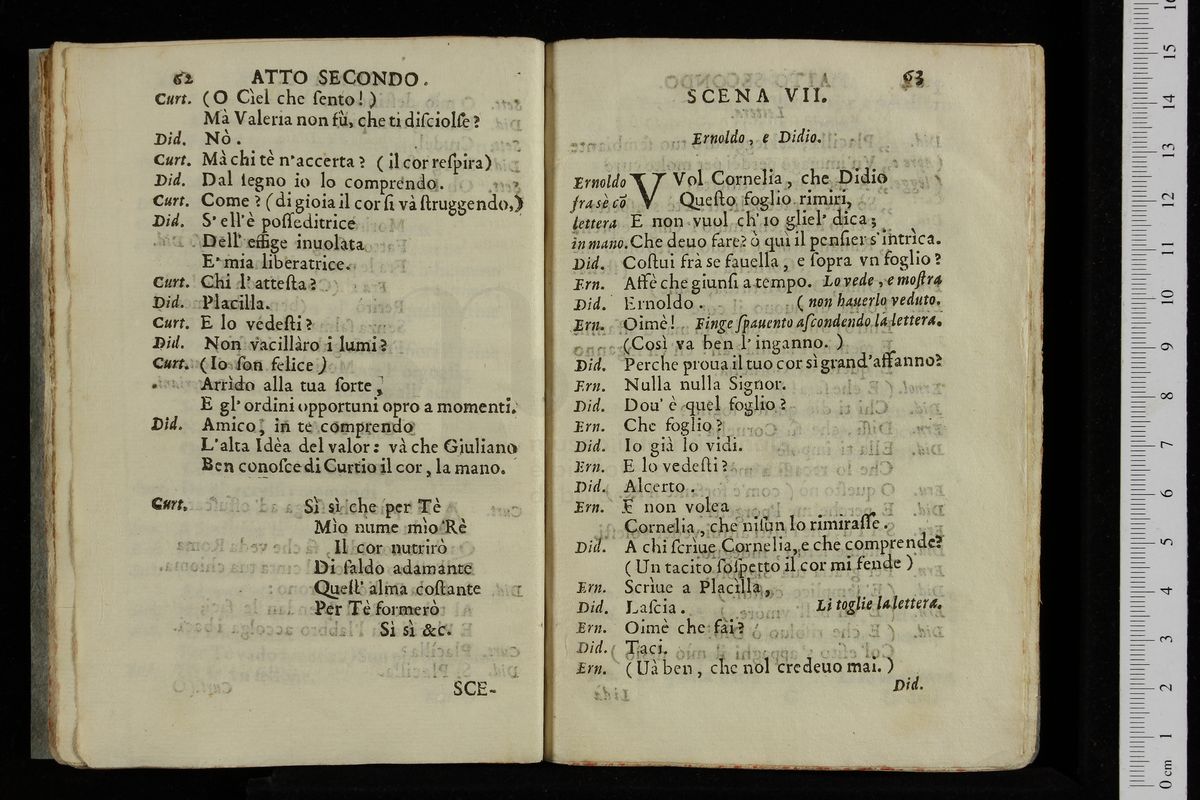 62 ATTO SECONDO.
Curt. (O Cìel che ſento!)
Mà Valeria non fù, che ti diſciolſe?
Did. Nò.
Curt. Mà chi tè n'accerta? (il cor reſpira)
Did. Dal ſegno io lo comprendo.
Curt. Come? (di gioia il cor ſi và ſtruggendo,)
Did. S' ell'è poſſeditrice
Dell' effige inuolata
E' mia liberatrice.
Curt. Chi l' atteſta?
Did. Placilla.
Curt. E lo vedeſti?
Did. Non vacillàro i lumi?
Curt. (Io ſon felice)
Arrìdo alla tua ſorte,
E gl' ordini opportuni opro a momenti.
Did. Amico, in te comprendo
L'alta Idèa del valor: và che Giuliano
Ben conoſce di Curtio il cor, la mano.
Curt. Sì sì che per Tè
Mìo nume mìo Rè
Il cor nutrirò
Di ſaldo adamante
Queſt' alma coſtante
Per Tè formerò
Sì sì &c.
SCE-
63
SCENA VII.
Ernoldo, e Didio.
Ernoldo VVol Cornelia, che Didio
fra sè cõ Queſto foglio rimiri,
lettera E non vuol ch' io gliel' dica;
in mano. Che deuo fare? ò qui il penſier s'intrìca.
Did. Coſtui frà se fauella, e ſopra vn foglio?
Ern. Affè che giunſi a tempo. Lo vede, e moſtra
Did. Ernoldo. (non hauerlo veduto.
Ern. Oimè! Finge ſpauento aſcondendo la lettera.
(Così va ben l'inganno.)
Did. Perche proua il tuo cor sì grand'affanno?
Ern. Nulla nulla Signor.
Did. Dou' è quel foglio?
Ern. Che foglio?
Did. Io già lo vidi.
Ern. E lo vedeſti?
Did. Alcerto.
Ern. E non volea
Cornelia, che niſun lo rimiraſſe.
Did. A chi ſcriue Cornelia, e che comprende?
(Un tacito ſoſpetto il cor mi fende)
Ern. Scrìue a Placilla,
Did. Laſcia. Li toglie la lettera.
Ern. Oimè che fài?
Did. Taci.
Ern. (Uà ben, che nol credeuo mai.)
Did.
0 cm 1 2 3 4 5 6 7 8 9 10 11 12 13 14 15